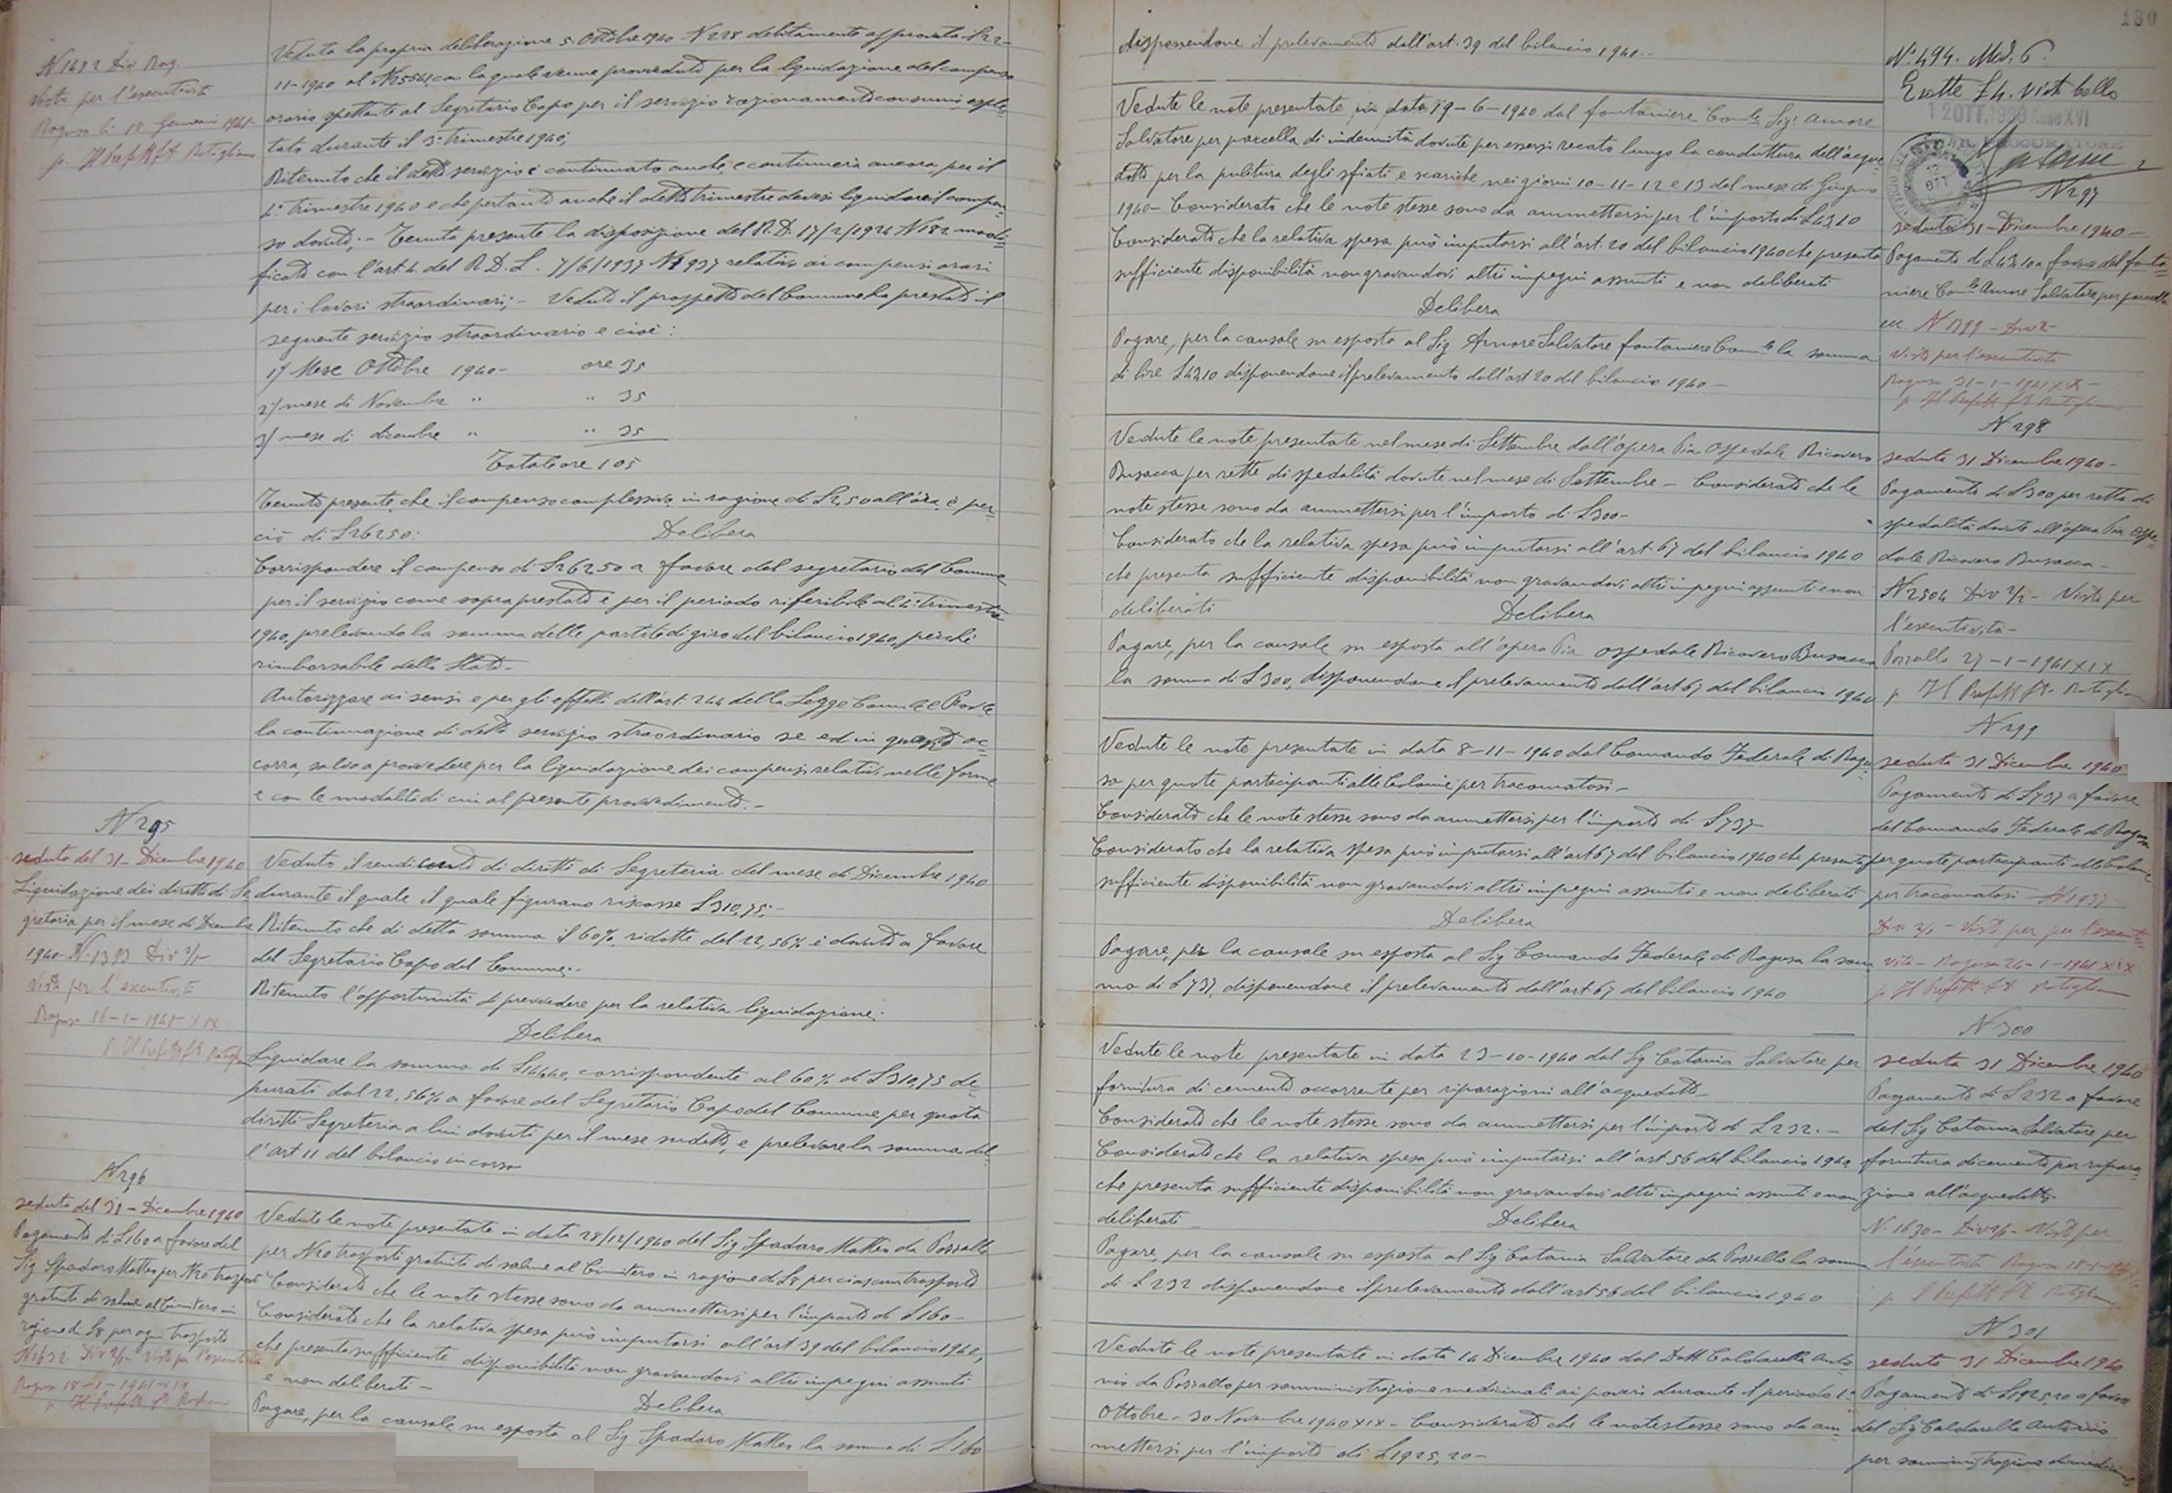 N 1692 Div Rag.
Visto per l'esecutività
Ragusa li 18 Gennaio 1941-
p. Il Prefetto
Veduta la propria deliberazione 5 Ottobre 1940 N 228 debitamente approvata il 22-
11-1940 al N con la quale venne provveduto per la liquidazione del compenso
orario spettante al Segretario Capo per il servizio razionamento consumi esple-
tato durante il 3° trimestre 1940;
Ritenuto che il detto servizio è continuato anche, e continuerà ancora, per il
4° trimestre 1940 e che pertanto anche il detto trimestre devesi liquidare il compen-
so dovuto; - Tenuta presente la disposizione del R.D. 17/2/1924 N 182 modi-
ficato con l'art. 4 del R.D.L. 7/6/1937 N 937 relativo ai compensi orari
per i lavori straordinari; - Veduto il prospetto del Comune ha prestato il
seguente servizio straordinario e cioè:
1) Mese Ottobre 1940- ore 35
2) mese di Novembre " " 35
3) mese di dicembre " " 35
Totale ore 105
Tenuto presente che il compenso complessivo in ragione di £2,50 all'ora, è per-
ciò di £262.50:
Delibera
Corrispondere il compenso di £262,50 a favore del segretario del Comune
per il servizio come sopra prestato e per il periodo riferibile al 4° trimestre
1940, prelevando la somma delle partite di giro del bilancio 1940, perché
rimborsabile dallo Stato-
Autorizzare ai sensi e per gli effetti dell'art. 244 della Legge Com.le e Prov.le
la continuazione di detto servizio straordinario se ed in quanto oc-
corra, salvo a provvedere per la liquidazione dei compensi relativi nelle forme
e con le modalità di cui al presente provvedimento.-
N 295
seduta del 31- Dicembre 1940
Liquidazione dei diritti di Se-
greteria per il mese di Dicembre
1940- N. 1393 Div 2/1-
Visto per l'esecutività
Ragusa 16-1-1941- XIX
p. Il Prefetto
Veduto il rendiconto di diritti di Segreteria del mese di Dicembre 1940
durante il quale il quale figurano riscosse £310,75;-
Ritenuto che di detta somma il 60% ridotte del 22,56% è dovuto a favore
del Segretario Capo del Comune;-
Ritenuto l'opportunità di provvedere per la relativa liquidazione;
Delibera
Liquidare la somma di £144,40, corrispondente al 60% di £310,75 de-
purati dal 22,56% a favore del Segretario Capo del Comune per quota
diritti Segreteria a lui dovuti per il mese sudetto, e prelevare la somma dal-
l'art 11 del bilancio in corso
N 296
seduta del 31- Dicembre 1940
Pagamento di £160 a favore del
Sig Spadaro Matteo per N 20 trasporti
gratuiti di salme al Cimitero in
ragione di £8 per ogni trasporto
N 1632 Div 2/1- Visto per l'esecutività
Ragusa 18-1-1941-XIX
p. Il Prefetto
Vedute le note presentate in data 28/12/1940 del Sig Spadaro Matteo da Pozzallo
per N 20 trasporti gratuiti di salme al Cimitero in ragione di £8 per ciascun trasporto
Considerato che le note stesse sono da ammettersi per l'importo di £160-
Considerato che la relativa spesa può imputarsi all'art 39 del bilancio 1940,
che presenta sufficiente disponibilità non gravandovi altri impegni assunti
e non deliberati-
Delibera
Pagare, per la causale su esposta al Sig Spadaro Matteo la somma di £160
disponendone il prelevamento dall'art. 39 del bilancio 1940-
130
N° 494. Mod. 6
Esatte £4. Visto bollo
12 OTT. 1938 Anno XVI
N 297
seduta 31- Dicembre 1940-
Pagamento di £43,10 a favore del fonta-
niere Com.le Amore Salvatore, per parcella
ecc. N 1799- Div 2-
Visto per l'esecutività
Ragusa 31-1-1941 XIX-
p. Il Prefetto
Vedute le note presentate in data 19-6-1940 dal fontaniere Com.le Sig. Amore
Salvatore per parcella di indennità dovute per essersi recato lungo la conduttura dell'acque-
dotto per la pulitura degli sfiati e scariche nei giorni 10-11-12 e 13 del mese di Giugno
1940- Considerato che le note stesse sono da ammettersi per l'importo di £43,10
Considerato che la relativa spesa può imputarsi all'art. 20 del bilancio 1940 che presenta
sufficiente disponibilità non gravandovi altri impegni assunti e non deliberati
Delibera
Pagare, per la causale su esposta al Sig Amore Salvatore fontaniere Com.le la somma
di lire £43,10 disponendone il prelevamento dall'art 20 del bilancio 1940-
N 298
seduta 31 Dicembre 1940-
Pagamento di £300 per rette di
spedalità dovute all'opera Pia Ospe-
dale Ricovero Busacca-
N 2504 Div 2/1- Visto per
l'esecutività-
Pozzallo 27-1-1941 XIX
p. Il Prefetto
Vedute le note presentate nel mese di Settembre dall'opera Pia Ospedale Ricovero
Busacca per rette di spedalità dovute nel mese di Settembre- Considerato che le
note stesse sono da ammettersi per l'importo di £300-
Considerato che la relativa spesa può imputarsi all'art. 67 del bilancio 1940
che presenta sufficiente disponibilità non gravandovi altri impegni assunti e non
deliberati
Delibera
Pagare, per la causale su esposta all'opera Pia Ospedale Ricovero Busacca
la somma di £300, disponendone il prelevamento dall'art 67 del bilancio 1940
N 299
seduta 31 Dicembre 1940
Pagamento di £737 a favore
del Comando Federale di Ragusa
per quote partecipanti alle Colonie
per tracomatosi- N 1937
Div 2/1- Visto per per l'esecuti-
vità- Ragusa 24-1-1941 XIX
p. Il Prefetto
Vedute le note presentate in data 8-11-1940 dal Comando Federale di Ragu-
sa per quote partecipanti alle Colonie per tracomatosi-
Considerato che le note stesse sono da ammettersi per l'importo di £737-
Considerato che la relativa spesa può imputarsi all'art 67 del bilancio 1940 che presenta
sufficiente disponibilità non gravandovi altri impegni assunti e non deliberati
Delibera
Pagare, per la causale su esposta al Sig Comando Federale di Ragusa la som-
ma di £737, disponendone il prelevamento dall'art 67 del bilancio 1940
N 300
seduta 31 Dicembre 1940
Pagamento di £232 a favore
del Sig Catania Salvatore per
fornitura di cemento per ripara-
zione all'acquedotto.
N. 1630- Div 2/1- Visto per
l'esecutività Ragusa 18-1-1941
p. Il Prefetto
Vedute le note presentate in data 23-10-1940 dal Sig Catania Salvatore per
fornitura di cemento occorrente per riparazioni all'acquedotto-
Considerato che le note stesse sono da ammettersi per l'importo di £232.-
Considerato che la relativa spesa può imputarsi all'art 56 del bilancio 1940
che presenta sufficiente disponibilità non gravandovi altri impegni assunti e non
deliberati-
Delibera
Pagare, per la causale su esposta al Sig Catania Salvatore da Pozzallo la somma
di £232 disponendone il prelevamento dall'art 56 del bilancio 1940
N 301
seduta 31 Dicembre 1940
Pagamento di £1925,20 a favore
del Sig Caldarella Antonio
per somministrazione di medicine
Vedute le note presentate in data 14 Dicembre 1940 dal Dott Caldarella Anto-
nio da Pozzallo per somministrazione medicinali ai poveri durante il periodo 1°
Ottobre- 30 Novembre 1940 XIX- Considerato che le note stesse sono da am-
mettersi per l'importo di £1925,20-